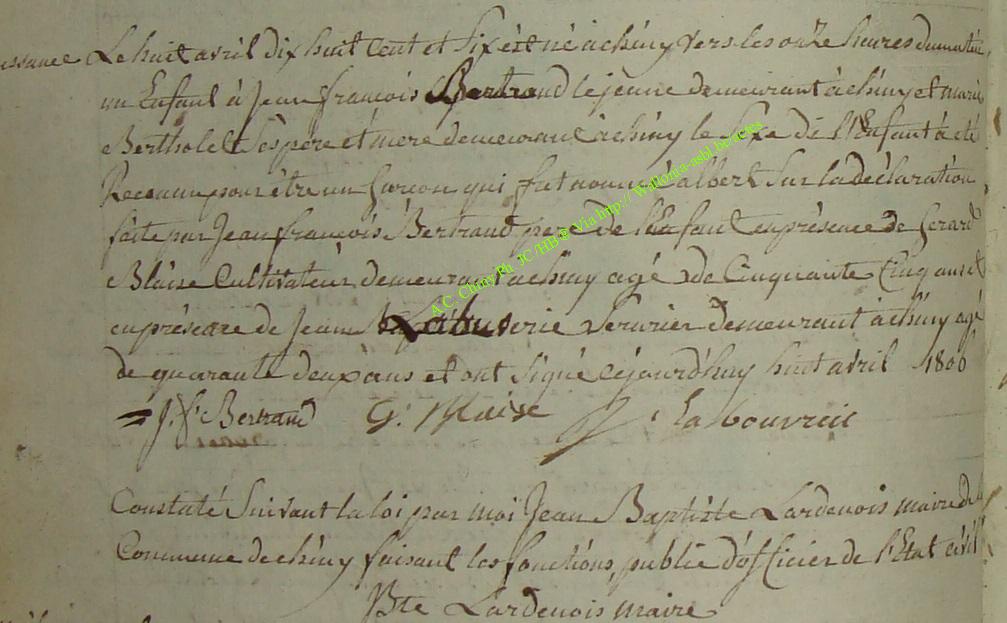 Le huit avril dix huit cent et six est né a chiny vers les onze heures du matin
un Enfant à Jean françois Bertrand le jeune demeurant à chiny et marie
Bertholet ses père et mere demeurant à chiny le sexe de l'Enfant à été
Reconnu pour être un garçon qui fut nommé albert Sur la déclaration
faite par Jean françois Bertrand pere de l'Enfant en présence de Gerard
Blaise Cultivateur demeurant a chiny agé de Cinquante Cinq ans et
en présence de Jean Serurier demeurant à chiny agé
de quarante deux ans et ont signé cejourd'huy huit avril 1806
= J. f. Bertrand G: Blaise J: la bouverie
Constaté Suivant la loi par moi Jean Baptiste Lardenois maire de la
Commune de chiny faisant les fonctions publie d'officier de l'Etat civil
Bte Lardenois maire
A.C. Chiny Ph JC HB © Via http://Wallonia-asbl.be/actes